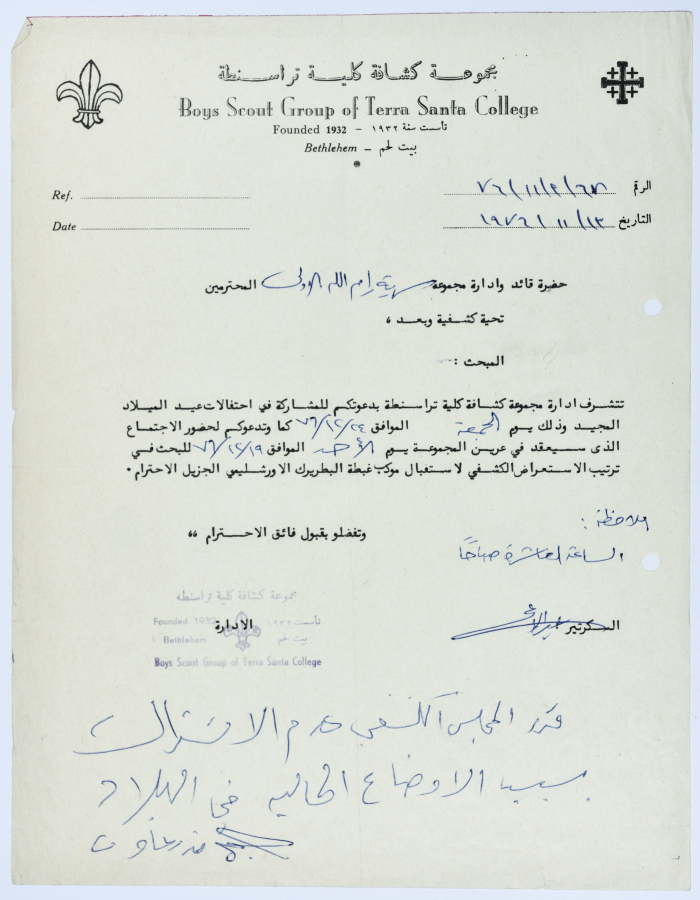 مجموعة كشافة كلية تراسنطة
Boys Scout Group of Terra Santa College
Founded 1932 – تأسست سنة ١٩٣٢
Bethlehem – بيت لحم
الرقم
Ref.
التاريخ ١٩٧٦/١١/١٣
Date
حضرة قائد وادارة مجموعة سرية رام الله الاولى المحترمين
تحية كشفية وبعد ،
المبحث :
تتشرف ادارة مجموعة كشافة كلية تراسنطة بدعوتكم للمشاركة في احتفالات عيد الميلاد
المجيد وذلك يوم الجمعة الموافق ٧٦/١٢/٢٤ كما وتدعوكم لحضور الاجتماع
الذى سيعقد في عرين المجموعة يوم الأحد الموافق ٧٦/١٢/١٩ للبحث في
ترتيب الاستعراض الكشفي لاستعبال موكب غبطة البطريرك الاورشليمي الجزيل الاحترام .
ملاحظة :
الساعة العاشرة صباحًا
وتفضلو بقبول فائق الاحترام ،،
السكرتير
الادارة
مجموعة كشافة كلية تراسنطه
Founded 1932 تأسست ١٩٣٢
Bethlehem بيت لحم
Boys Scout Group of Terra Santa College
قرر المجلس الكشفي عدم الاشتراك
بسبب الاوضاع الحاليه في البلاد